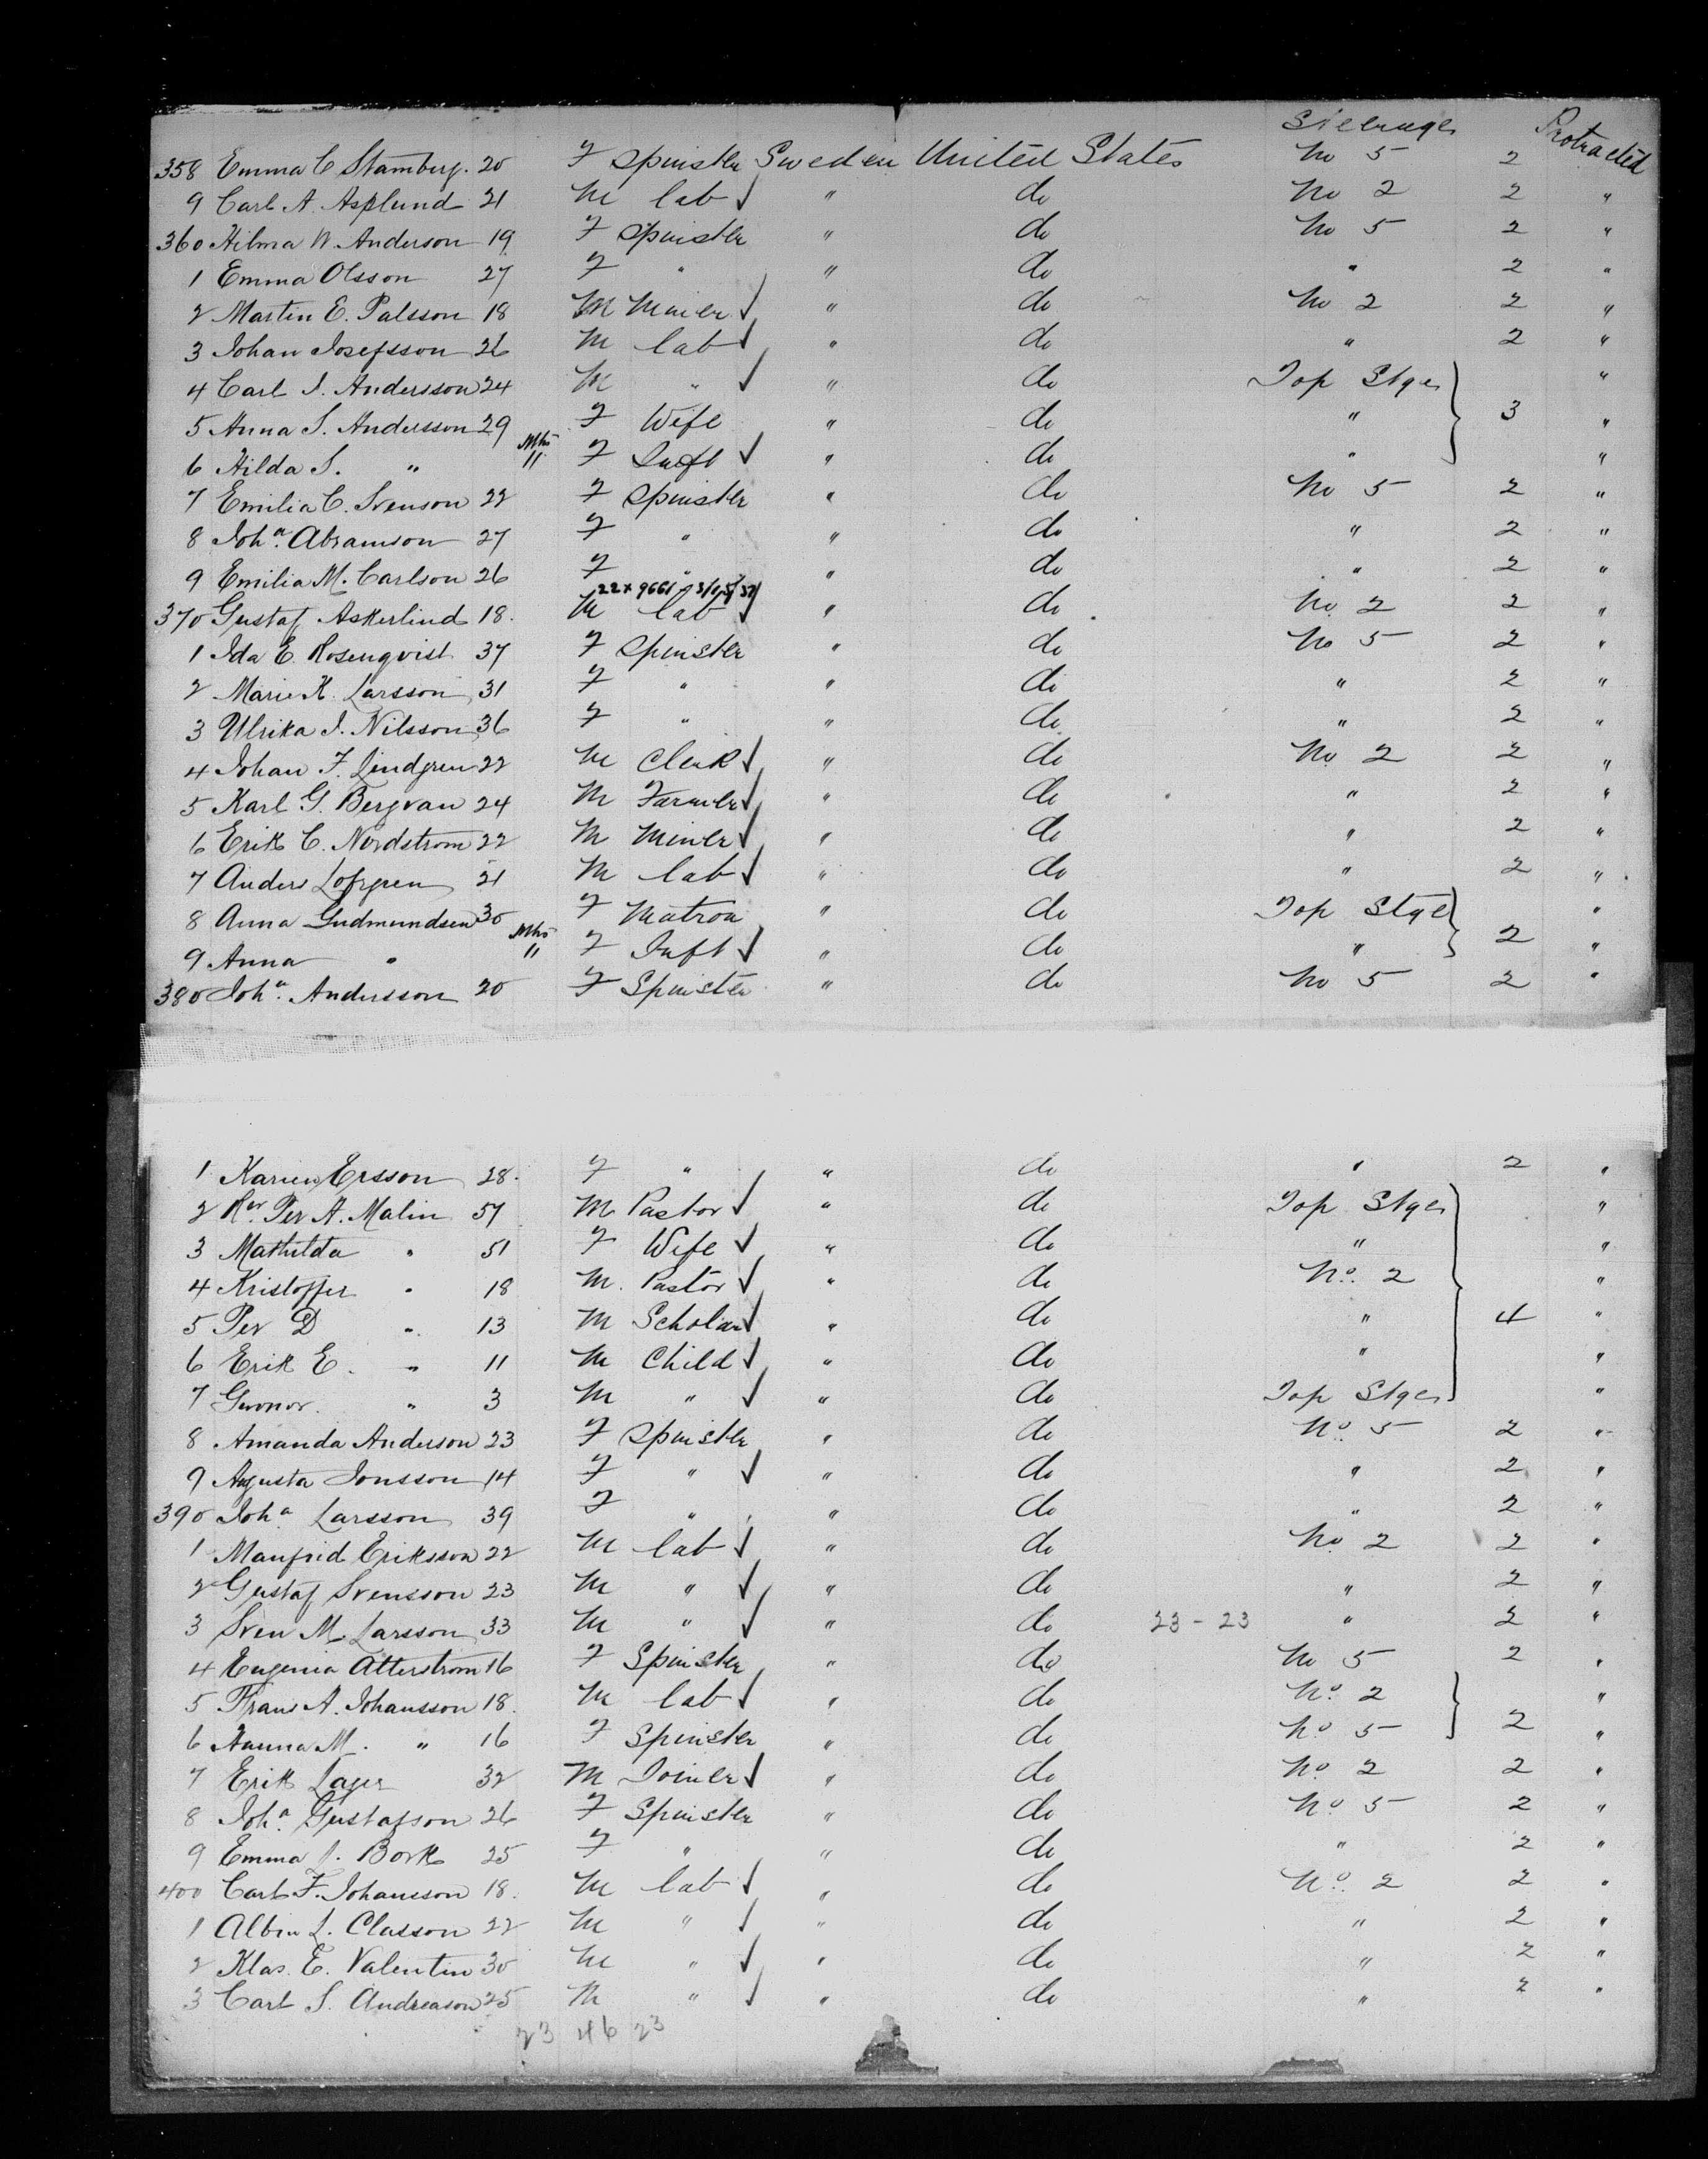 Steerage
358 Emma C Stamberg. 20 F Spinster Sweden United States No 5 2 Protracted
9 Carl A. Asplund 21 M lab ✓ " do No 2 2 "
360 Hilma W. Anderson 19 F Spinster " do No 5 2 "
1 Emma Olsson 27 F " " do " 2 "
2 Martin E. Palsson 18 M Miner ✓ " do No 2 2 "
3 Johan Josefsson 26 M lab ✓ " do " 2 "
4 Carl J. Andersson 24 M " ✓ " do Top Stge "
5 Anna S. Andersson 29 F Wife " do " 3 "
6 Hilda S. " Mhs 11 F Inft ✓ " do " "
7 Emilia C. Svenson 22 F Spinster " do No 5 2 "
8 Joha. Abramson 27 F " " do " 2 "
9 Emilia M. Carlson 26 F " " do " 2 "
22 x 9661
370 Gustaf Askerlind 18. M lab ✓ " do No 2 2 "
1 Ida E. Rosenqvist 37 F Spinster " do No 5 2 "
2 Marie K. Larsson 31 F " " do " 2 "
3 Ulrika J. Nilsson 36 F " " do " 2 "
4 Johan F. Lindgren 22 M Clerk ✓ " do No 2 2 "
5 Karl G. Bergvan 24 M Farmer ✓ " do " 2 "
6 Erik C. Nordstrom 22 M Miner ✓ " do " 2 "
7 Anders Lofgren 21 M lab ✓ " do " 2 "
8 Anna Gudmundsen 30 F Matron " do Top Stge "
9 Anna " Mhs 11 F Inft ✓ " do " 2 "
380 Joha. Andersson 20 F Spinster " do No 5 2 "
1 Karin Ersson 28. F " " do " 2 "
2 Rev Per A. Malin 57 M Pastor ✓ " do Top Stge "
3 Mathilda " 51 F Wife ✓ " do " "
4 Kristoffer " 18 M. Pastor ✓ " do No. 2 "
5 Per D " 13 M Scholar ✓ " do " 4 "
6 Erik E. " 11 M Child ✓ " do " "
7 " 3 M " ✓ " do Top Stge "
8 Amanda Anderson 23 F Spinster " do No. 5 2 "
9 Agusta Jonsson 14 F " ✓ " do " 2 "
390 Joha Larsson 39 F " " do " 2 "
1 Manfrid Eriksson 22 M lab ✓ " do No 2 2 "
2 Gustaf Svensson 23 M " ✓ " do " 2 "
3 Sven M. Larsson 33 M " ✓ " do 23 - 23 " 2 "
4 Eugenia Atterstrom 16 F Spinster " do No 5 2 "
5 Frans A. Johansson 18. M lab ✓ " do No. 2 "
6 Hanna M. " 16 F Spinster " do No 5 2 "
7 Erik Lager 32 M Joiner ✓ " do No 2 2 "
8 Joha. Gustafson 26 F Spinster " do No. 5 2 "
9 Emma J. Bork 25 F " " do " 2 "
400 Carl F. Johansson 18. M lab ✓ " do No. 2 2 "
1 Albin L. Classon 22 M " ✓ " do " 2 "
2 Klas. E. Valentin 30 M " ✓ " do " 2 "
3 Carl S. Andreason 25 M " ✓ " do " 2 "
23 46 23